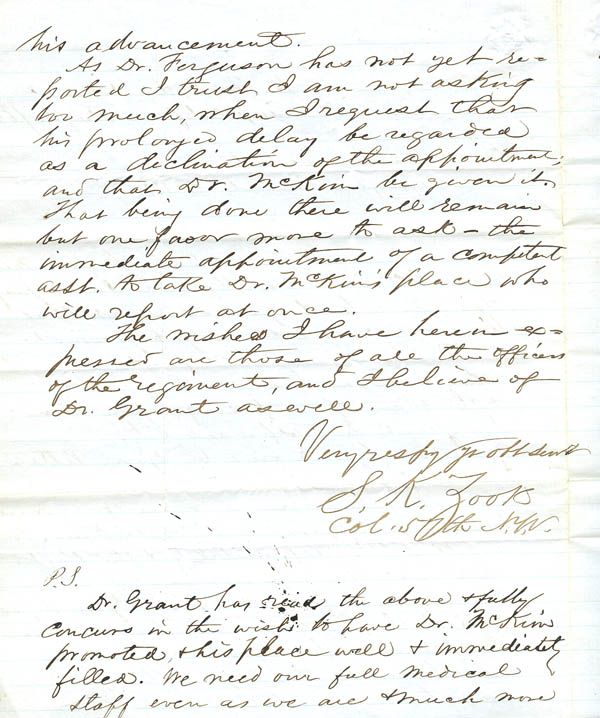 his advancement.
As Dr. Ferguson has not yet re=
ported I trust I am not asking
too much, when I request that
his prolonged delay be regarded
as a declination of the appointment;
and that Dr. McKim be given it.
That being done there will remain
but one favor more to ask – the
immediate appointment of a competent
asst. to take Dr. McKim's place who
will report at once.
The wishes I have herein ex=
pressed are those of all the officers
of the regiment, and I believe of
Dr. Grant as well.
Very respy yr obt servt
S. K. Zook
Col. 57th N.Y.V.
P.S.
Dr. Grant has read the above & fully
concurs in the wish to have Dr. McKim
promoted, & his place well & immediately
filled. We need our full medical
staff even as we are & much more